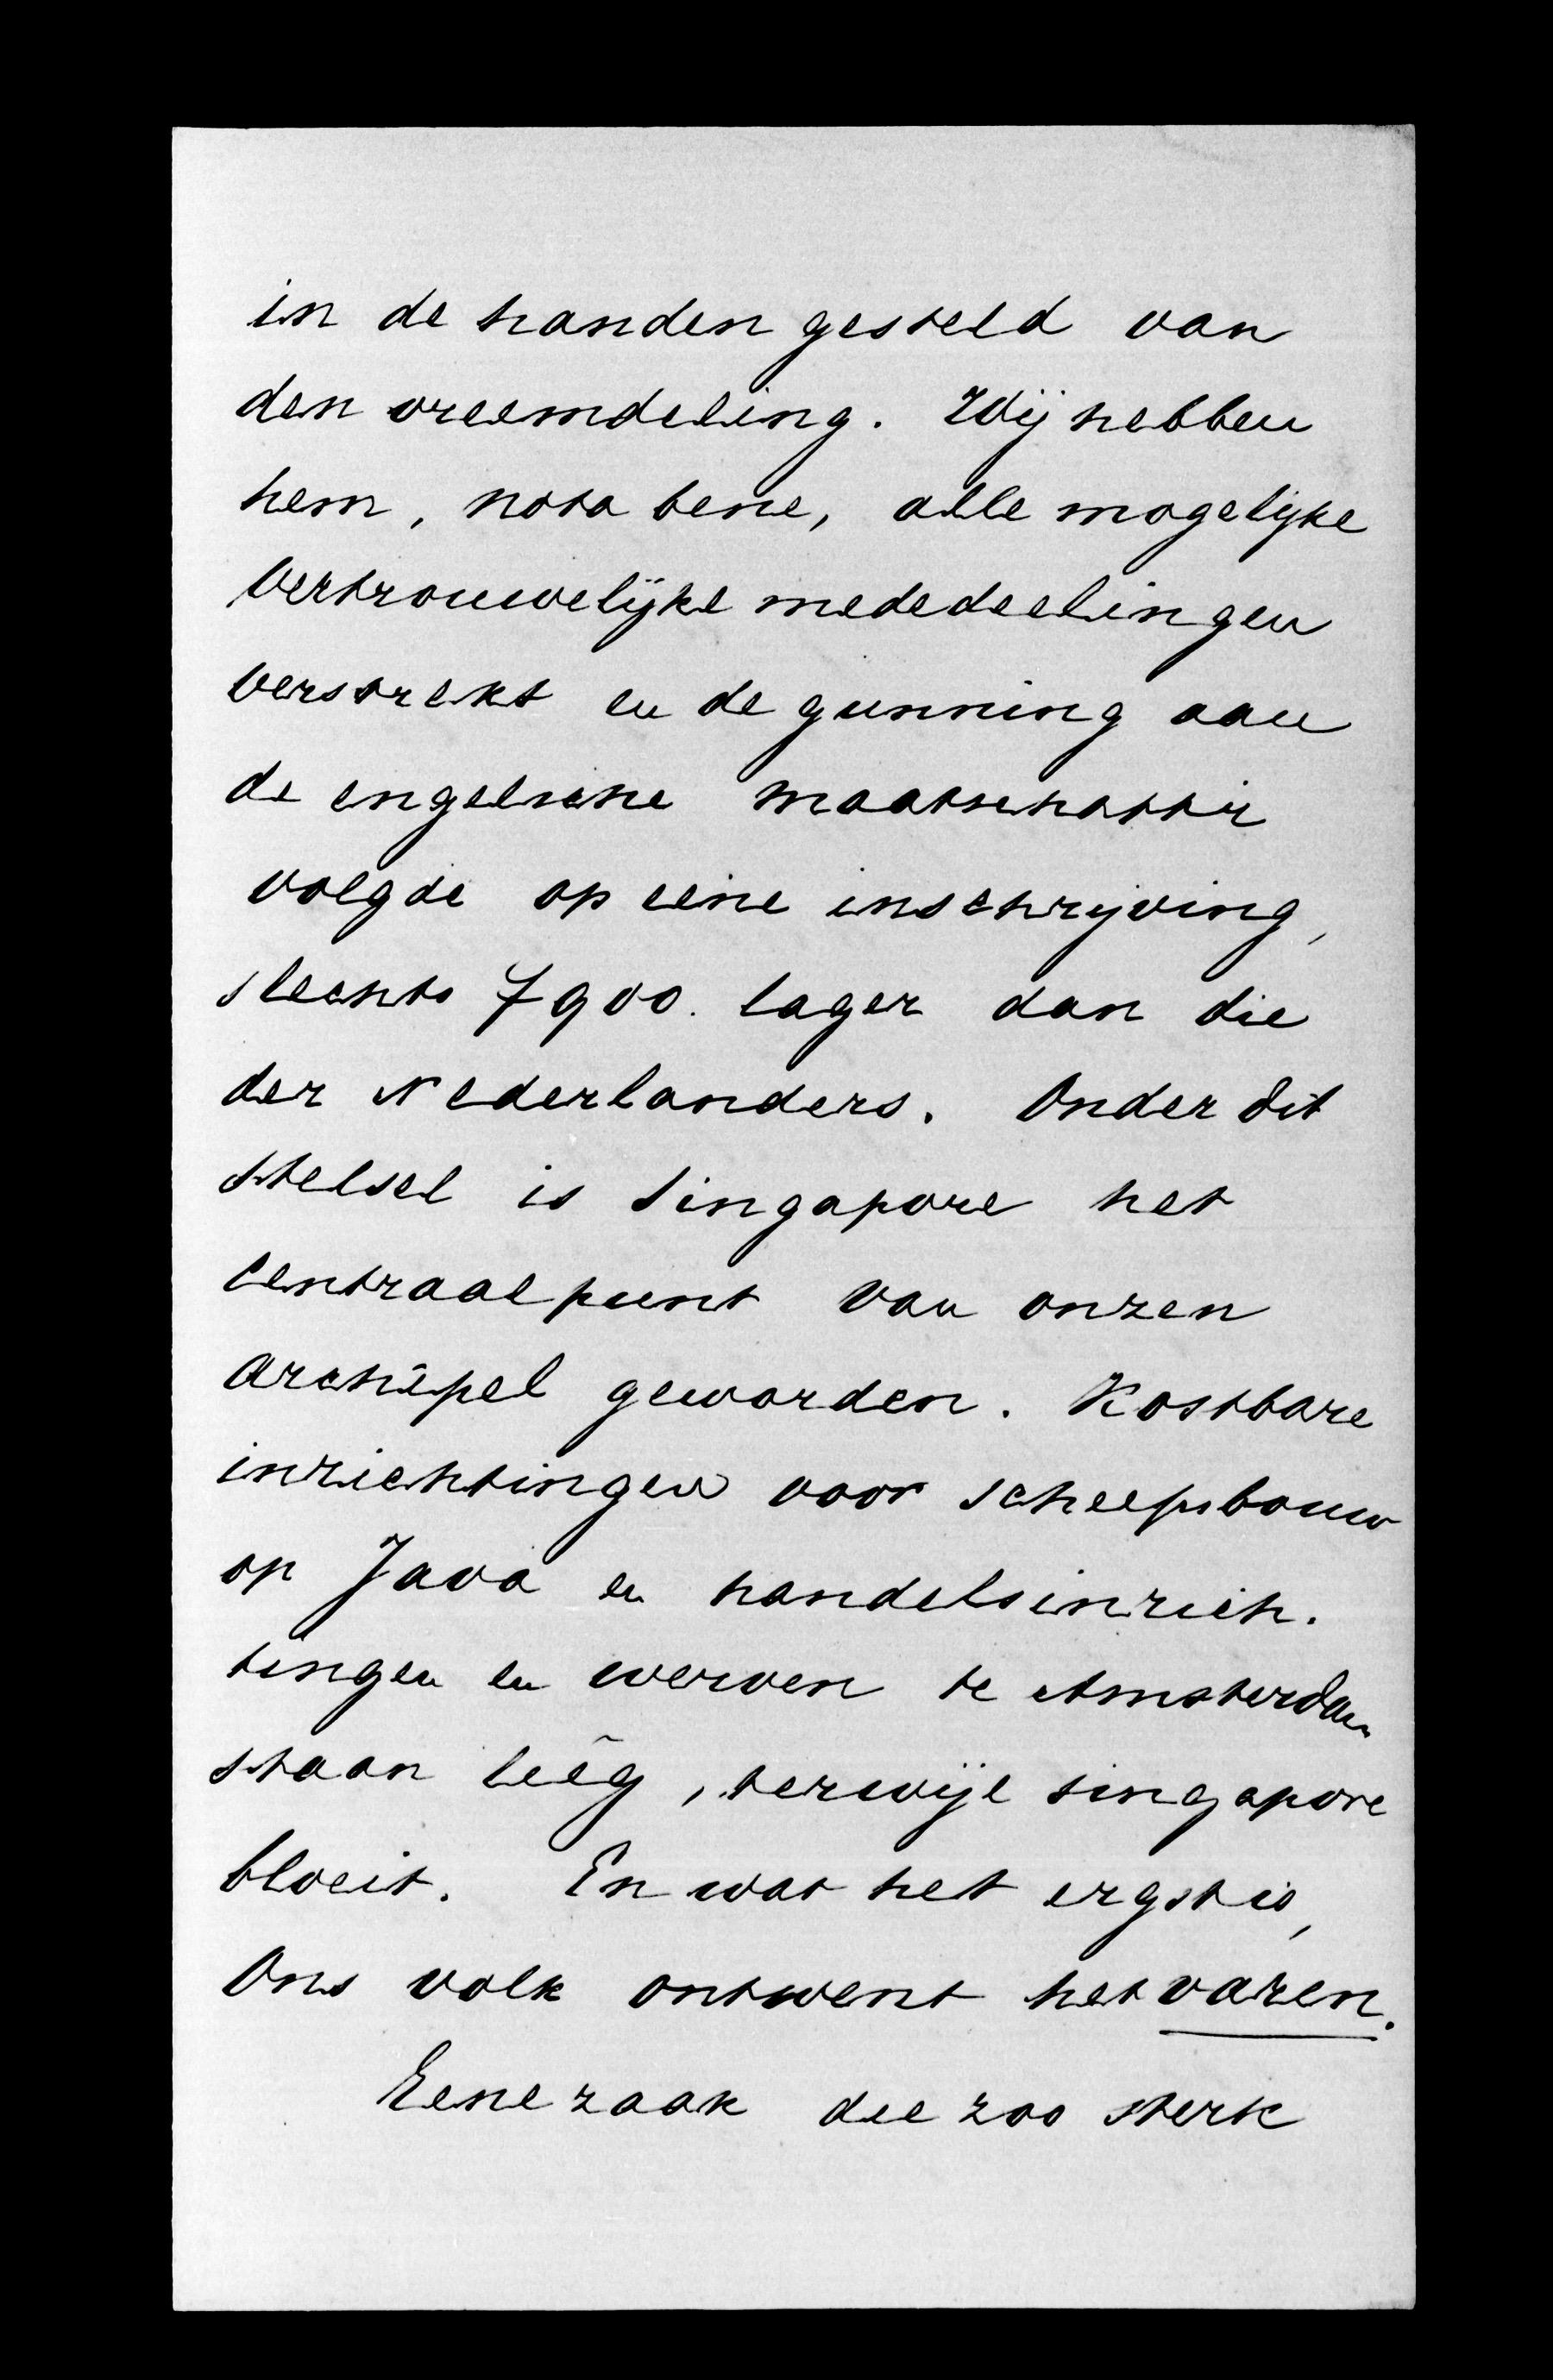 in de handen gesteld van
den vreemdeling. Wij hebben
hem, nota bene, alle mogelijke
vertrouwelijke mededeelingen
verstrekt en de gunning aan
de engelsche maatschappij
volgde op eene inschrijving,
slechts ƒ 900. lager dan die
der Nederlanders. Onder dit
stelsel is Singapore het
centraalpunt van onzen
archipel geworden. Kostbare
inrichtingen voor scheepsbouw
op Java en handelsinrich.
tingen en werven te Amsterdam
staan leêg, terwijl Singapore
bloeit. En wat het ergst is,
Ons volk ontwent het varen.
Eene zaak die zoo sterk